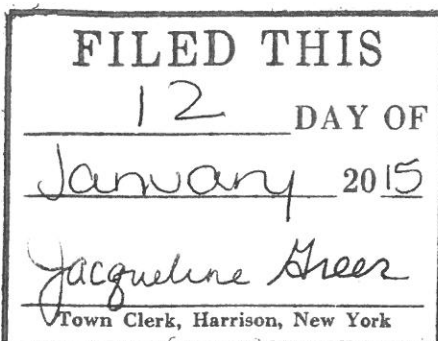 FILED THIS
12 DAY OF
January 2015
Jacqueline Greer
Town Clerk, Harrison, New York